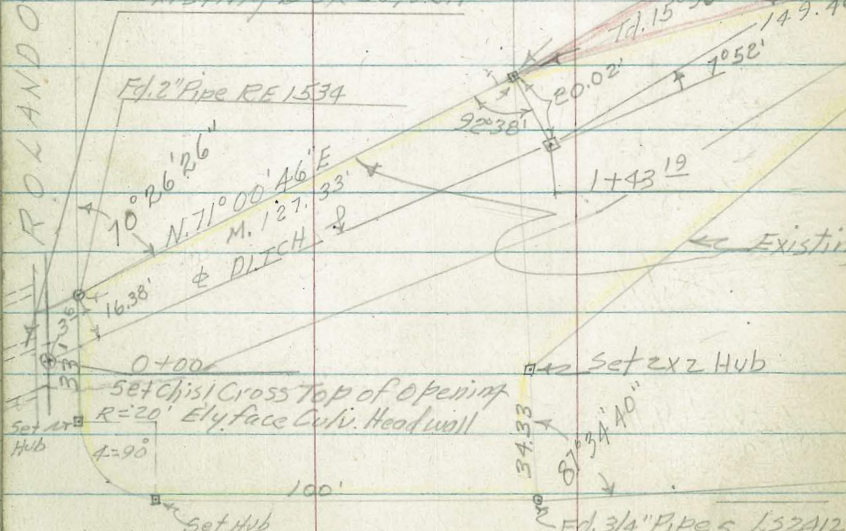 ROLANDO
Td. 15°
149.4
7°52'
20.02'
Fd. 2" Pipe R.E 1534
92°38'
70°26'26"
N.71°00'46"E
M. 127.33'
1+43 19
℄ DITCH &
Existin
16.38'
0+00
Set 2x2 Hub
Set Chisl Cross Top of Opening
R=20' Ely. face Culv. Headwall
Set
Hub
34.33
87°34'40"
Δ=90°
100'
Set Hub
Fd. 3/4" Pipe